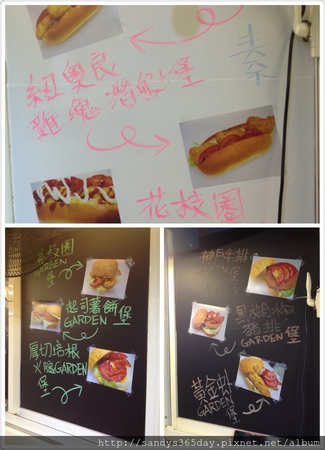 紐奧良
雞塊潛艇堡
花枝圈
花枝圈
GARDEN
堡
起司薯餅堡
GARDEN
厚切培根
火腿GARDEN
堡
神戶牛排
堡
黑胡椒
豬排
GARDEN
堡
黃金蝦
GARDEN
堡
http://sandys365day.pixnet.net/album